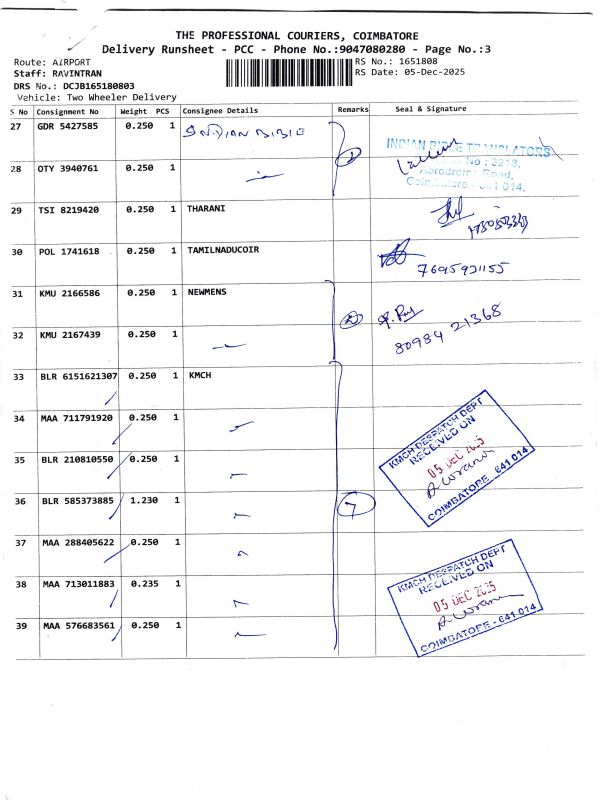 THE PROFESSIONAL COURIERS, COIMBATORE
Delivery Runsheet - PCC - Phone No.:9047080280 - Page No.:3
Route: AIRPORT
Staff: RAVINTRAN
DRS No.: DCJB165180803
Vehicle: Two Wheeler Delivery
RS No.: 1651808
RS Date: 05-Dec-2025
S No Consignment No Weight PCS Consignee Details Remarks Seal & Signature
27 GDR 5427585 0.250 1 INDIAN BIBLE
INDIAN BIBLE TRANSLATORS
No : 3213,
Aerodrome Road,
Coimbatore - 641 014.
28 OTY 3940761 0.250 1
29 TSI 8219420 0.250 1 THARANI
30 POL 1741618 0.250 1 TAMILNADUCOIR
7695931155
31 KMU 2166586 0.250 1 NEWMENS
32 KMU 2167439 0.250 1
80984 21368
33 BLR 6151621307 0.250 1 KMCH
34 MAA 711791920 0.250 1
35 BLR 210810550 0.250 1
36 BLR 585373885 1.230 1 7
KMCH DESPATCH DEPT
RECEIVED ON
05 DEC 2025
COIMBATORE - 641 014
37 MAA 288405622 0.250 1
38 MAA 713011883 0.235 1
39 MAA 576683561 0.250 1
KMCH DESPATCH DEPT
RECEIVED ON
05 DEC 2025
COIMBATORE - 641 014